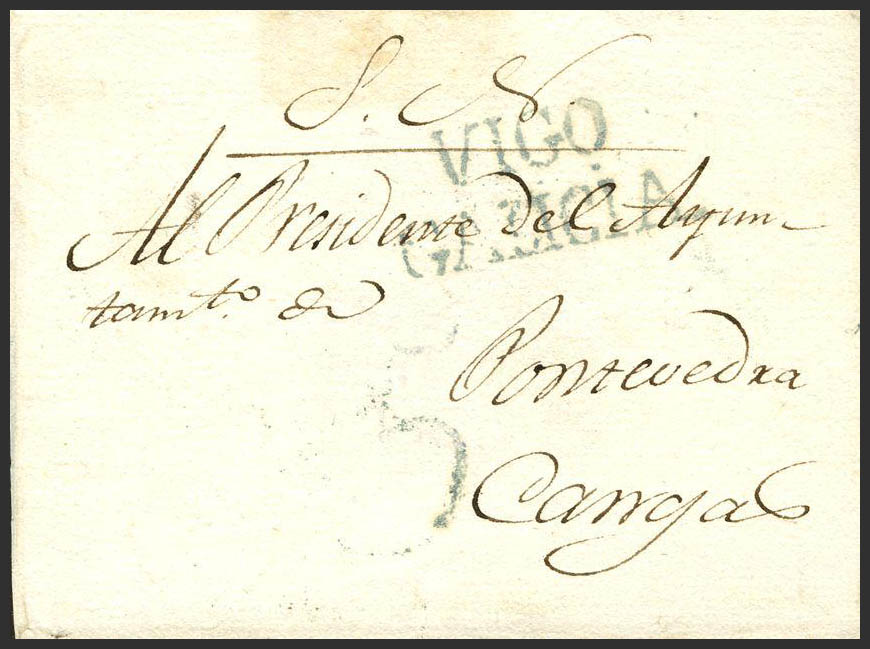 S. N.
VIGO
GALICIA
Al Presidente del Ayun-
tamto. de
5
Pontevedra
Cangas